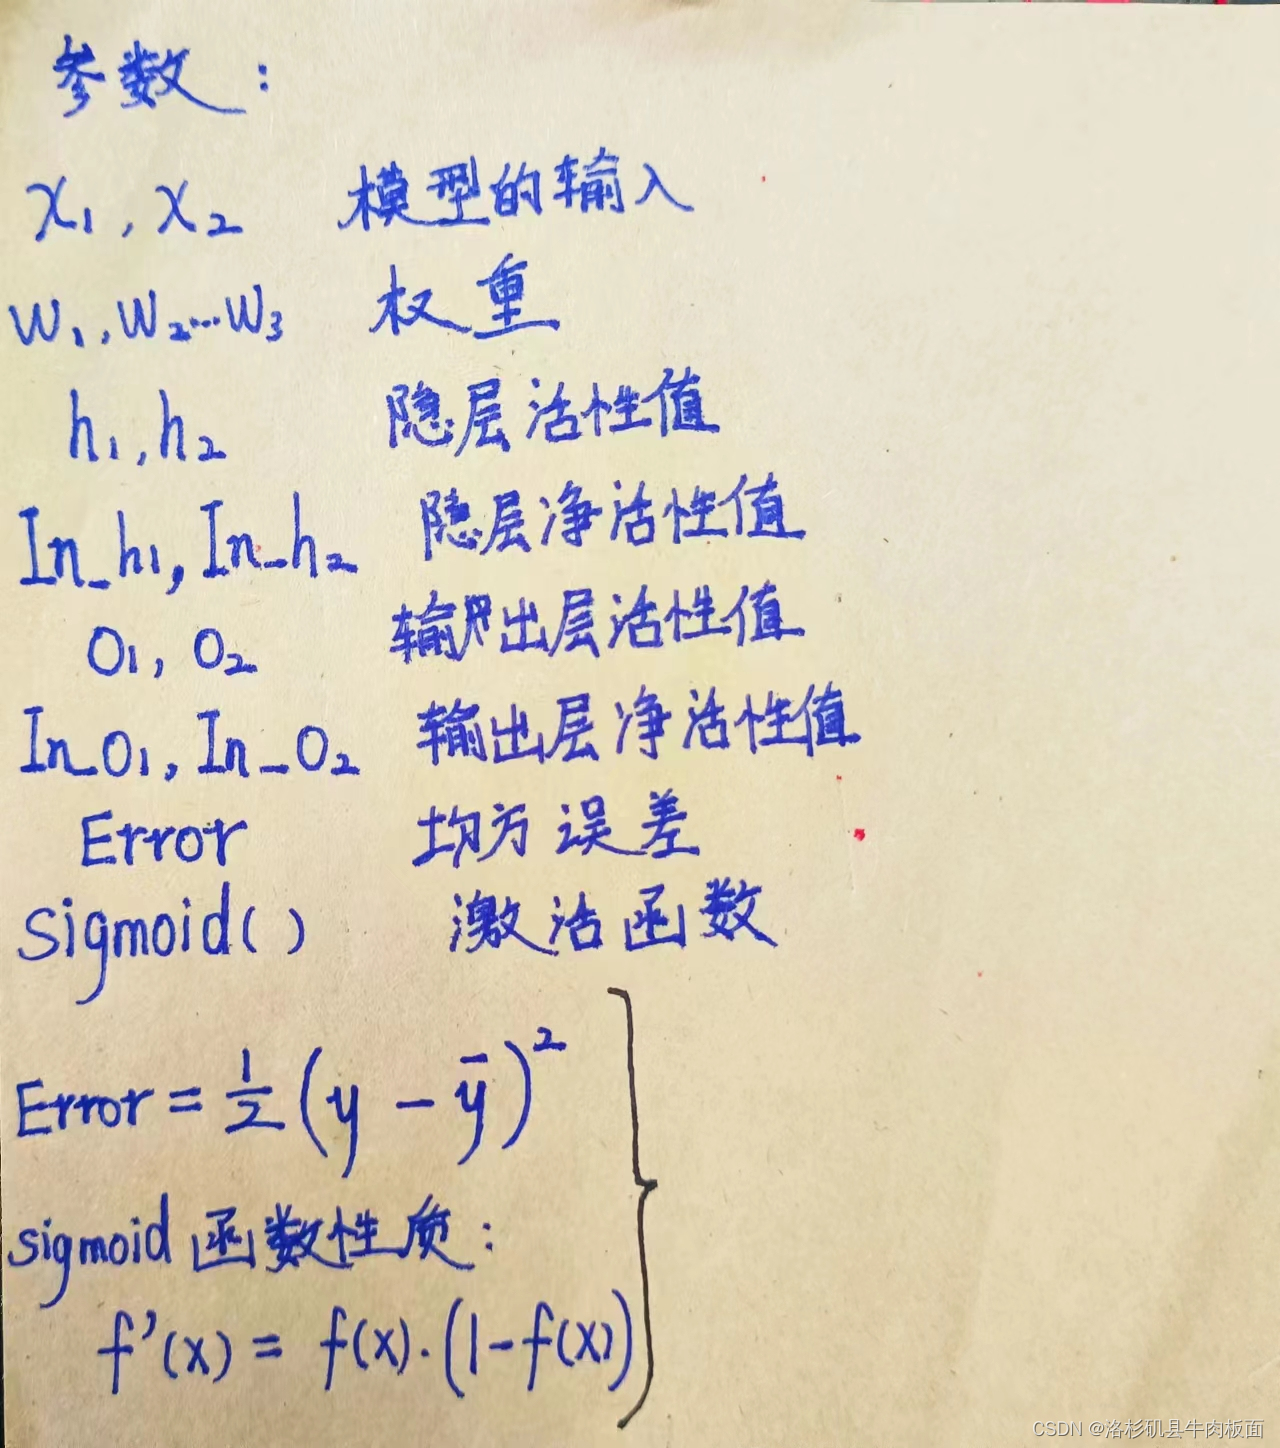 参数：
x₁, x₂ 模型的输入
w₁, w₂...w₃ 权重
h₁, h₂ 隐层活性值
In_h₁, In_h₂ 隐层净活性值
O₁, O₂ 输出层活性值
In_O₁, In_O₂ 输出层净活性值
Error 均方误差
sigmoid() 激活函数
Error = 1/2 (y - ȳ)²
sigmoid 函数性质：
f'(x) = f(x)·(1-f(x))
CSDN @洛杉矶县牛肉板面